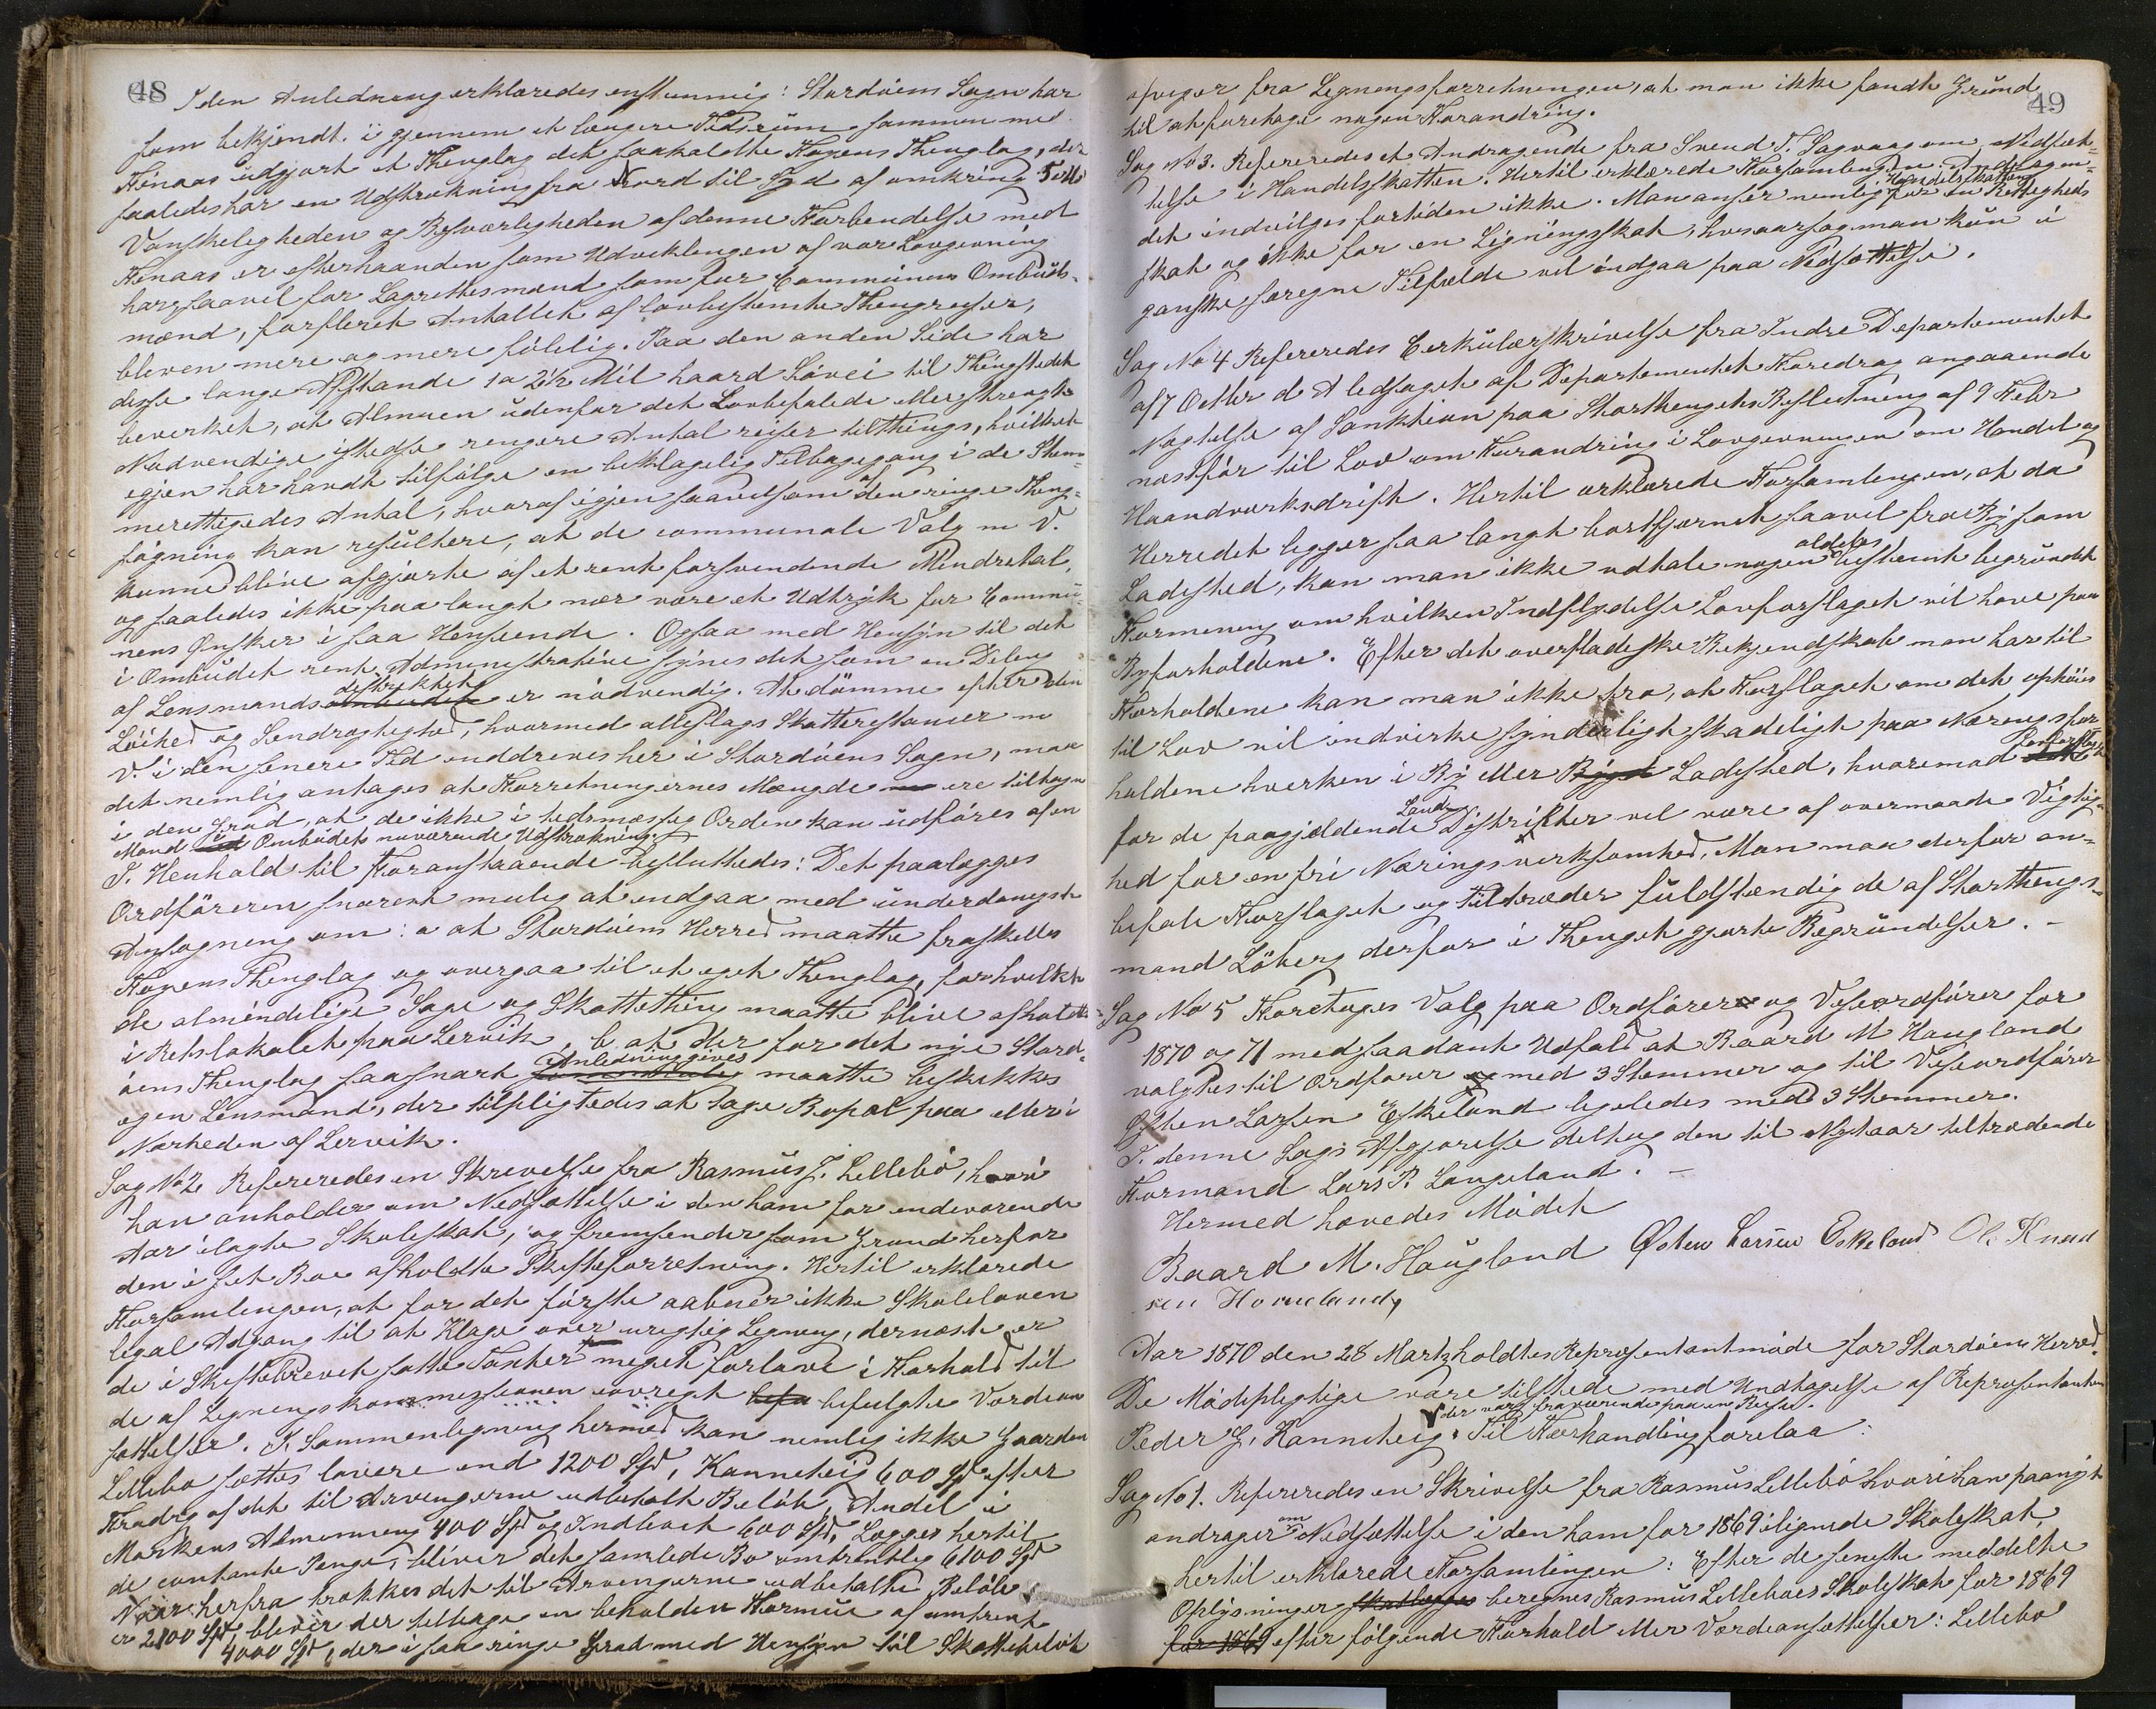 48
I den Anledning erklæredes enstemmig: Stordöens Sogn har
som bekjendt i gjennem et længere Tidsrum sammen med
Fenaas udgjort et Thinglag det saakaldte Fogens Thinglag, der
saaledes har en Udstrækning fra Nord til Syd af omkring 5 Mil
Vanskeligheden og Besværligheden af denne Forbindelse med
Fenaas er efterhaanden som Udviklingen af vor Lovgivning
har, saavel for Lagrettesmænd som for Communens Ombuds-
mænd, forfleret Antallet af lovbestemte Thingreiser,
bleven mere og mere fölelig. Paa den anden Side har
disse lange Afstande 1 a 2 1/2 Mil haard Söveí til Thingstedet
bevirket, at Almuen udenfor det Lovbefalede eller strengt
Nödvendige i stedse ringere Antal reiser til Things, hvilket
igjen har havdt tilfölge en beklagelig Tilbagegang i de Stem-
meretttigedes Antal, hvoraf igjen saavelsom af den ringe Thing-
sögning kan resultere, at de communale Valg m. V.
kunne blive afgjorte af et rent forsvindende Mindretal,
og saaledes ikke paa langt nær være et Udtryk for Commu-
nens Ønsker i saa Henseende. Ogsaa med Hensyn til det
i Ombudet rent Administrative synes det som en Deling
af Lensmandsombudet distriktet er nödvendig. At dömme efter den
Löihed og Sendrægtighed, hvormed alleslags Skatterestancer m
V. i den senere Tid inddrives her i Stordöens Sogn, maa
det nemlig antages at Forretningernes Mængde ere tiltagne
i den Grad, at de ikke i tedsmæssig Orden kan udföres af en
Mand ved Ombudets nuværende Udstrækning.
I. Henhold til Foranstaaende besluttedes: Det paalægges
Ordföreren snarest mulig at indgaa med underdanigst
Ansögning om: a at Stordöens Herred maatte fraskilles
Fogens Thinglag og overgaa til et eget Thinglag, for hvilket
de almindelige Sage og Skattething maatte blive afholdt
i Retslokalet paa Lervik, b at der for det nye Stord-
öens Thinglag saasnart Anledning gives maatte beskikkes
egen Lensmand, der tilpligtedes at tage Bopæl paa eller i
Nærheden af Lervik.
Sag No 2. Refereredes en Skrivelse fra Rasmus J. Lillebö, hvori
han anholder om Nedsættelse i den ham for indeværende
Aar ilagte Skoleskat, og fremsender som Grund herfor
den i sit Boe afholdte Skifteforretning. Hertil erklærede
Forsamlingen, at for det förste aabner ikke Skoleloven
legal Adgang til at Klage over urigtig Ligning, dernæst er
de i Skiftebrevet satte Taxter meget forlave i Forhold til
de af Ligningskommissionen iovrigt befulgte Værdian
sættelser. I. Sammenligning hermed kan nemlig ikke Gaarden
Lillebo sættes lavere end 1200 Spd, Kannikeig 600 Spd efter
Fradrg af det til Arvingerne udbetalt Belöb, Andel i
Markens Almenning 400 Spd og Indboet 600 Spd, Lægges hertil
de contante Penge, bliver det samlede Bo omtrentlig 6100 Spd
Naar herfra trækkes det til Arvingerne udbetalte Belöb
er 2100 Spd, bliver der tilbage en beholden Formue af omtrent
4000 Spd, der i saa ringe Grad med Hensyn til Skattebelöb
49
afviger fra Ligningsforretningen, at man ikke fandt Grund
til at foretage nogen Forandring.
Sag No 3. Refereredes et Andragende fra Svend T. Sagvaag om Nedsæt-
telse i Handelsskatten. Hertil erklærede Forsamlingen Andragen-
det indvilges fortiden ikke. Man anser nemlig Handelsskatten for en Rettigheds
skat og ikke for en Ligningsskat, hvoraarsag man kun i
ganske særegne Tilfælde vil indgaa paa Nedsættelse.
Sag No 4 Refereredes Cerkulærskrivelse fra Indre Departementet
af 7 Octbr d. A ledsaget af Departementet Foredrag angaaende
Nægtelse af Sanktion paa Storthingets Beslutning af 9 Febr
næstfór til Lov om Forandring i Lovgivningen om Handel og
Haandværksdrift. Hertil erklærede Forsamlingen, at da
Herredet ligger saa langt bortfjernet saavel fra By som
Ladested, kan man ikke udtale nogen aldeles bestemt begrundet
Formening om hvilken Indflydelse Lovforslaget vil have paa
Byforholdene. Efter det overfladiske Bekjendskab man har til
Forholdene kan man ikke tro, at Forslaget om det ophöies
til Lov vil indvirke synderligt skadeligt paa Næringsfor-
holdene hverken i By eller Bygd Ladested, hvorimod Lovforslaget
for de paagjældende Land Distrikter vil være af overmaade Vigtig-
hed for en fri Næringsvirksomhed. Man maa derfor an-
befale Forslaget og tiltræder fuldstændig de af Storthings-
mand Löberg derfor i Thinget gjorte Begrundelser. -
Sag No 5 Foretoges Valg paa Ordförer og Viseordförer for
1870 og 71 med saadant Udfald at Baard M Haugland
valgtes til Ordförer med 3 Stemmer og til Viseordförer
Østen Larsen Eskeland ligeledes med 3 Stemmer.
I. denne Sags Afgjörelse deltog den til Nytaar tiltrædende
Formand Lars P. Langeland. -
Hermed hævedes Mödet
Baard M. Haugland Østen Larsen Eskeland Ole Knud
sen Horneland,
Aar 1870 den 28 Marts holdtes Repræsentantmöde for Stordöens Herred.
De Mödepligtige vare tilstede med Undtagelse af Repræsentanten
Peder G. Kannikeig, der var fraværende paa en Reise. Til Forhandling forelaa:
Sag No 1. Refereredes en Skrivelse fra Rasmus Lillebö hvori han paanyt
andrager om Nedsættelse i den ham for 1869 ilignede Skoleskat,
hertil erklærede Forsamlingen: Efter de seneste meddelte
Oplysninger beregnes Rasmus Lilleboes Skoleskat for 1869
for 1869 efter fölgende Forhold eller Værdiansættelser: Lillebo